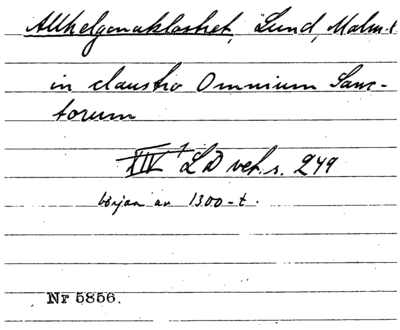 Allhelgonaklostret, Lund, Malm.l
in claustro Omnium Sanc-
torum
XIV¹ LD vet. s. 249
början av 1300-t.
Nr 5856.